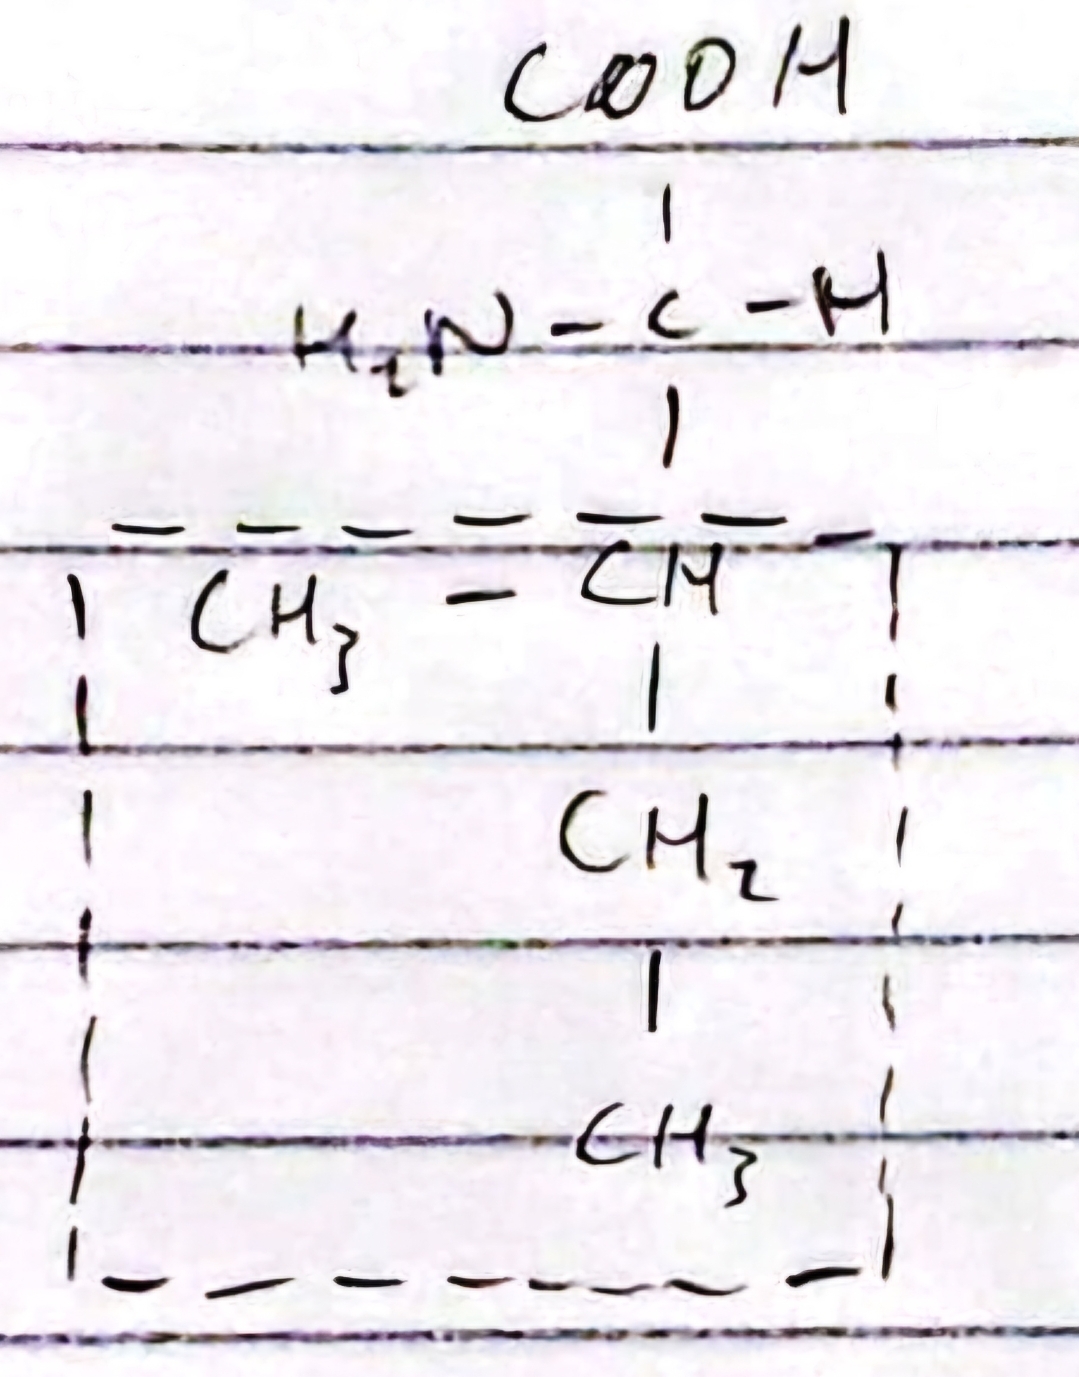 COOH
H₂N - C - H
CH₃ - CH
CH₂
CH₃